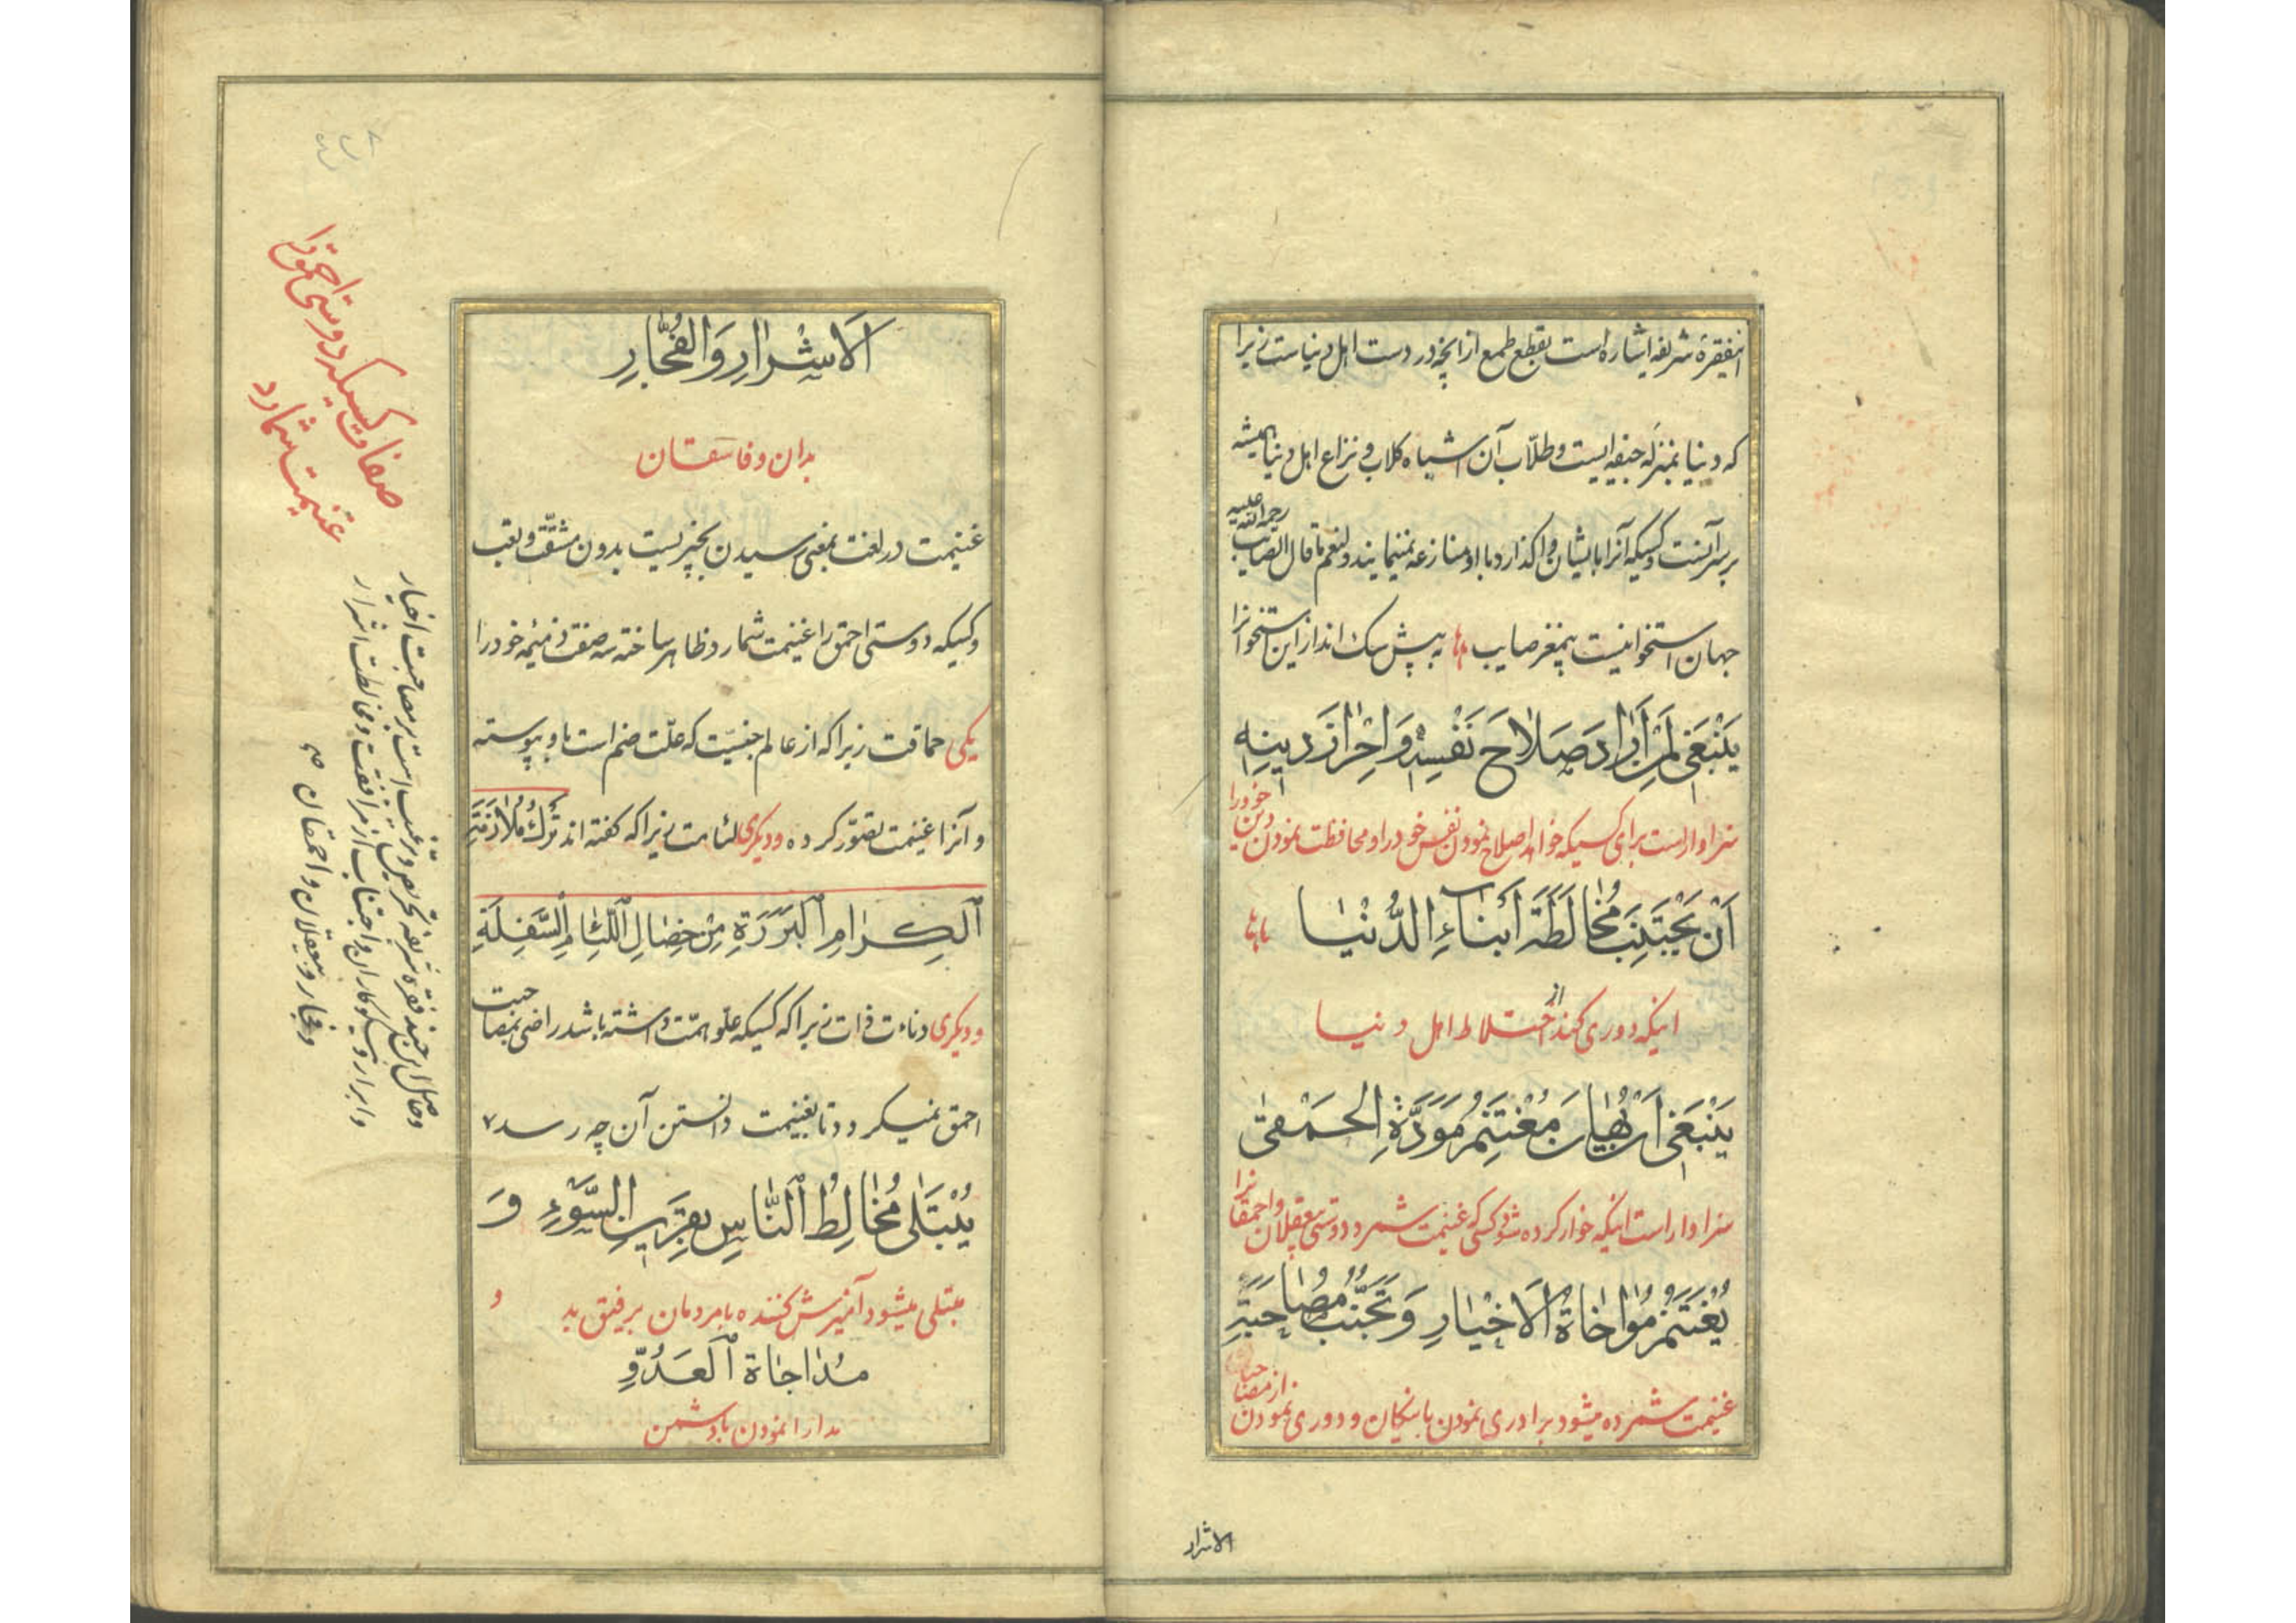 اینفقرهٔ شریفه اشاره است بقطع طمع از آنچه در دست اهل دنیاست زیرا
که دنیا بمنزلهٔ جیفه ایست و طلّاب آن اشباه کلاب و نزاع اهل دنیا همیشه
بر سر آنست و کسیکه آنرا بایشان واگذارد با او منازعه نمینمایند و لنعم ما قال الصایب رحمة الله علیه
جهان استخوانیست بیمغز صایب به پیش سگ انداز این استخوانرا
یَنْبَغی لِمَنْ اَرادَ صَلاحَ نَفْسِهِ وَ اِحْرازَ دینِهِ
سزاوار است برای کسیکه خواهد اصلاح نمودن نفس خود را و محافظت نمودن دین خود را
اَنْ یَجْتَنِبَ مُخالَطَةَ اَبْناءِ الدُّنْیا
اینکه دوری کند از اختلاط اهل دنیا
یَنْبَغی اَنْ یُهانَ مُغْتَنِمُ مَوَدَّةِ الحَمْقی
سزاوار است اینکه خوار کرده شود کسی که غنیمت شمرد دوستی بیعقلان و احمقانرا
یُغْتَنَمُ مُواخاةُ الاَخْیارِ وَ تَجَنُّبُ مُصاحَبَةِ
غنیمت شمرده میشود برادری نمودن با نیکان و دوری نمودن از مصاحبت
الاشرار
اَلاَشْرارِ وَ الفُجّارِ
بدان و فاسقان
غنیمت در لغت بمعنی رسیدن بچیزیست بدون مشقّت و تعب
و کسیکه دوستی احمق را غنیمت شمارد ظاهر ساخته سه صفت ذمیمهٔ خود را
یکی حماقت زیرا که از عالم جنسیّت که علّت ضم است باو پیوسته
و آنرا غنیمت تصوّر کرده و دیگری لئامت زیرا که گفته اند تَرْکُ مُلازَمَةِ
اَلکِرامِ البَرَرَةِ مِنْ خِصالِ اللِّئامِ السَّفِلَةِ
و دیگری دناءت ذات زیرا که کسیکه علوّ همّت داشته باشد راضی بمصاحبت
احمق نمیگردد تا بغنیمت دانستن آن چه رسد
یُبْتَلی مُخالِطُ النّاسِ بِقَرینِ السَّوْءِ وَ
مبتلی میشود آمیزش کننده با مردمان برفیق بد و
مُداجاةِ العَدُوِّ
مدارا نمودن با دشمن
صفات کسیکه دوستی احمق را
غنیمت شمارد
و حاصل این چند فقره شریفه تحریص و ترغیب است بر مصاحبت اخیار
و ابرار و نیکوکاران و اجتناب از مرافقت و مخالطت اشرار
و فجار و بیعقلان و احمقان